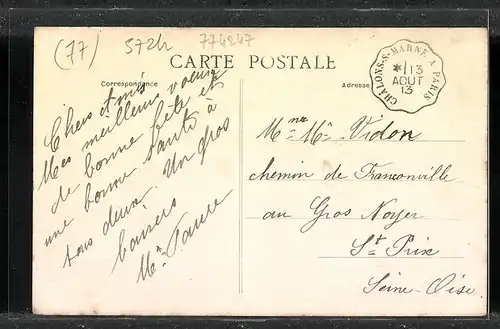 (77) 572h 774247
CARTE POSTALE
Correspondance
Adresse
CHALONS-S-MARNE A PARIS
* 13
AOUT
13
Chers amis
Mes meilleurs voeux
de bonne fête et
une bonne santé à
tous deux. Un gros
baisers
Mme
Mme Vidon
chemin de Franconville
au Gros Noyer
St Prix
Seine-Oise